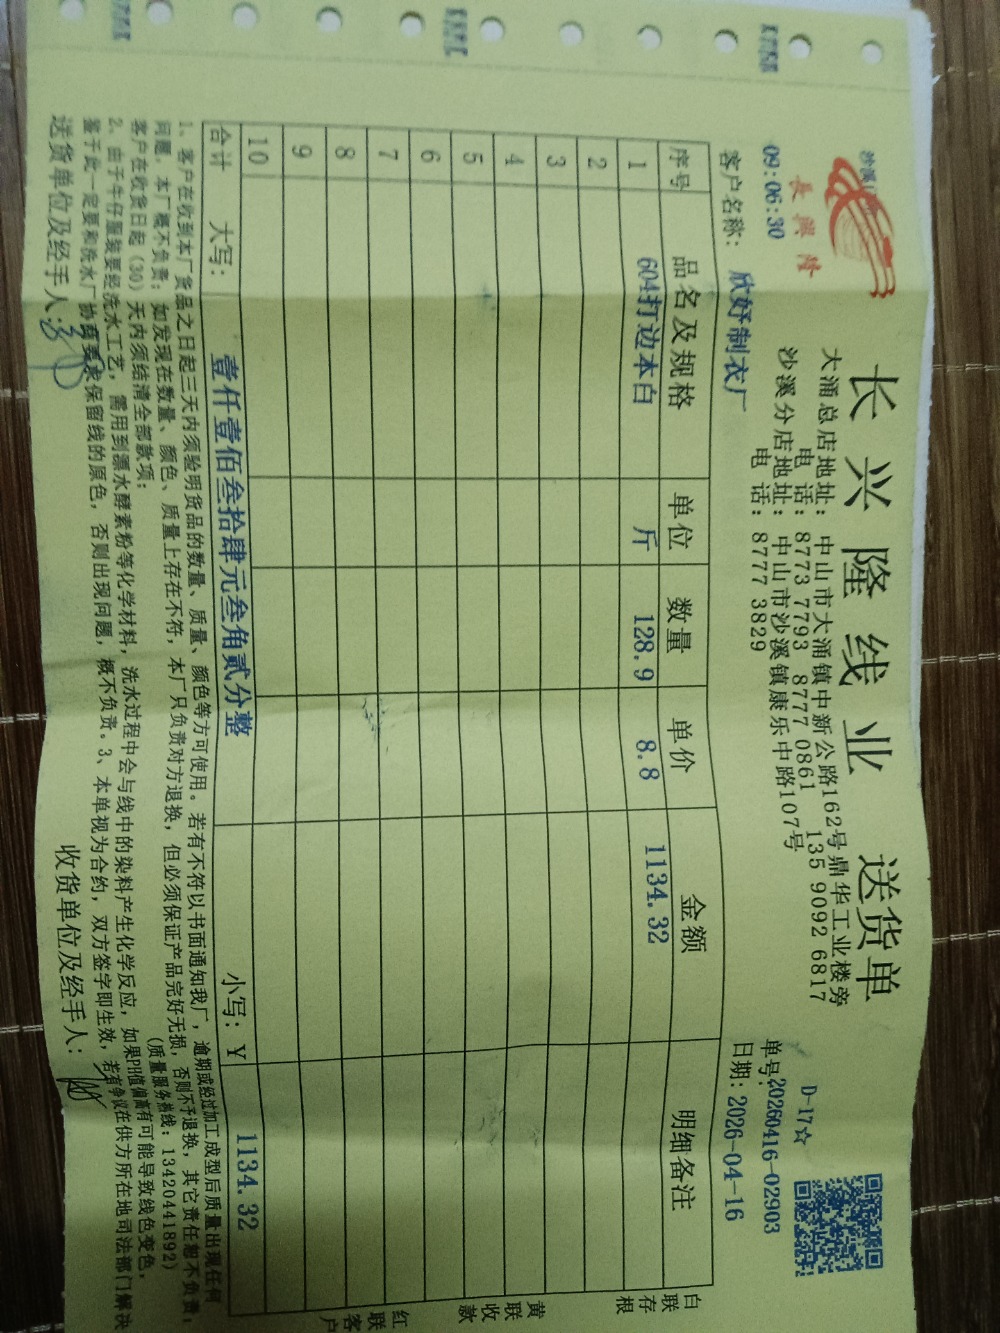 長興隆
09:06:30
长兴隆线业 送货单
D-17☆
大涌总店地址：中山市大涌镇中新公路162号鼎华工业楼旁
电 话：8773 7793 8777 0861 135 9092 6817
沙溪分店地址：中山市沙溪镇康乐中路107号
电 话：8777 3829
单号：20260416-02903
客户名称：欣妤制衣厂
日期：2026-04-16
序号 品名及规格 单位 数量 单价 金额 明细备注
1 604打边本白 斤 128.9 8.8 1134.32
2
3
4
5
6
7
8
9
10
合计 大写：壹仟壹佰叁拾肆元叁角贰分整 小写：¥ 1134.32
白联存根
黄联收款
红联客户
1、客户在收到本厂货品之日起三天内须验明货品的数量、质量、颜色等方可使用。若有不符以书面通知我厂，逾期或经过加工成型后质量出现任何
问题，本厂概不负责；如发现在数量、颜色、质量上存在不符，本厂只负责对方退换，但必须保证产品完好无损，否则不予退换，其它责任恕不负责；
客户在收货日起（30）天内须结清全部款项； （质量服务热线：13420441892）
2、由于牛仔服装要经洗水工艺，需用到漂水酵素粉等化学材料，洗水过程中会与线中的染料产生化学反应，如果PH值偏高有可能导致线色变色，
鉴于此一定要和洗水厂协商要求保留线的原色，否则出现问题，概不负责。3、本单视为合约，双方签字即生效，若有争议在供方所在地司法部门解决
送货单位及经手人： 收货单位及经手人：